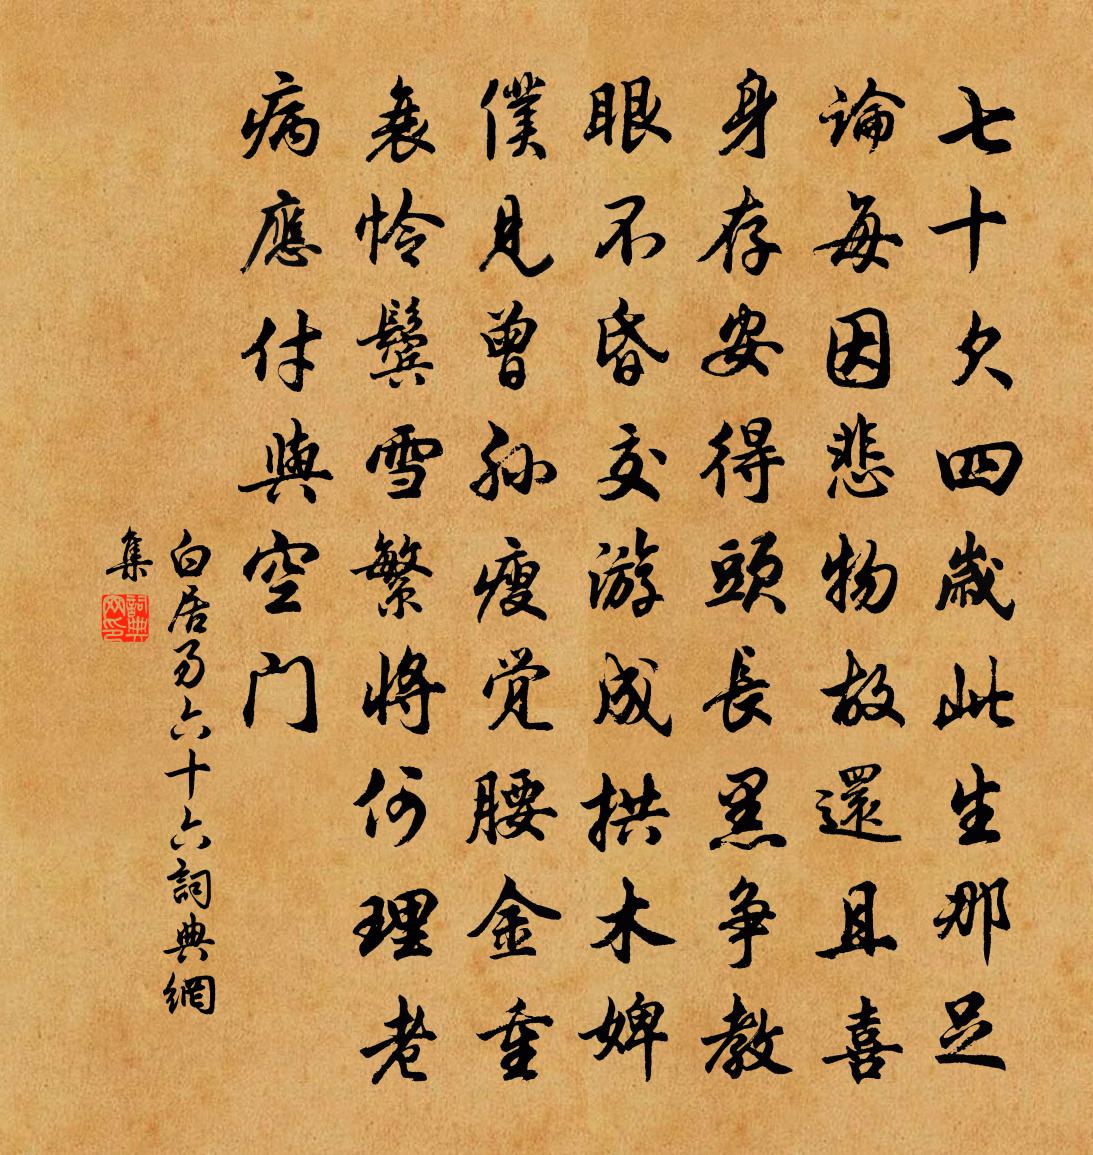 七十欠四歲此生那足
論每因悲物故還且喜
身存安得頭長黑爭教
眼不昏交游成拱木婢
僕見曾孫瘦覺腰金重
衰怜鬢雪繁將何理老
病應付與空門
白居易六十六詞典網
集
詞典網印